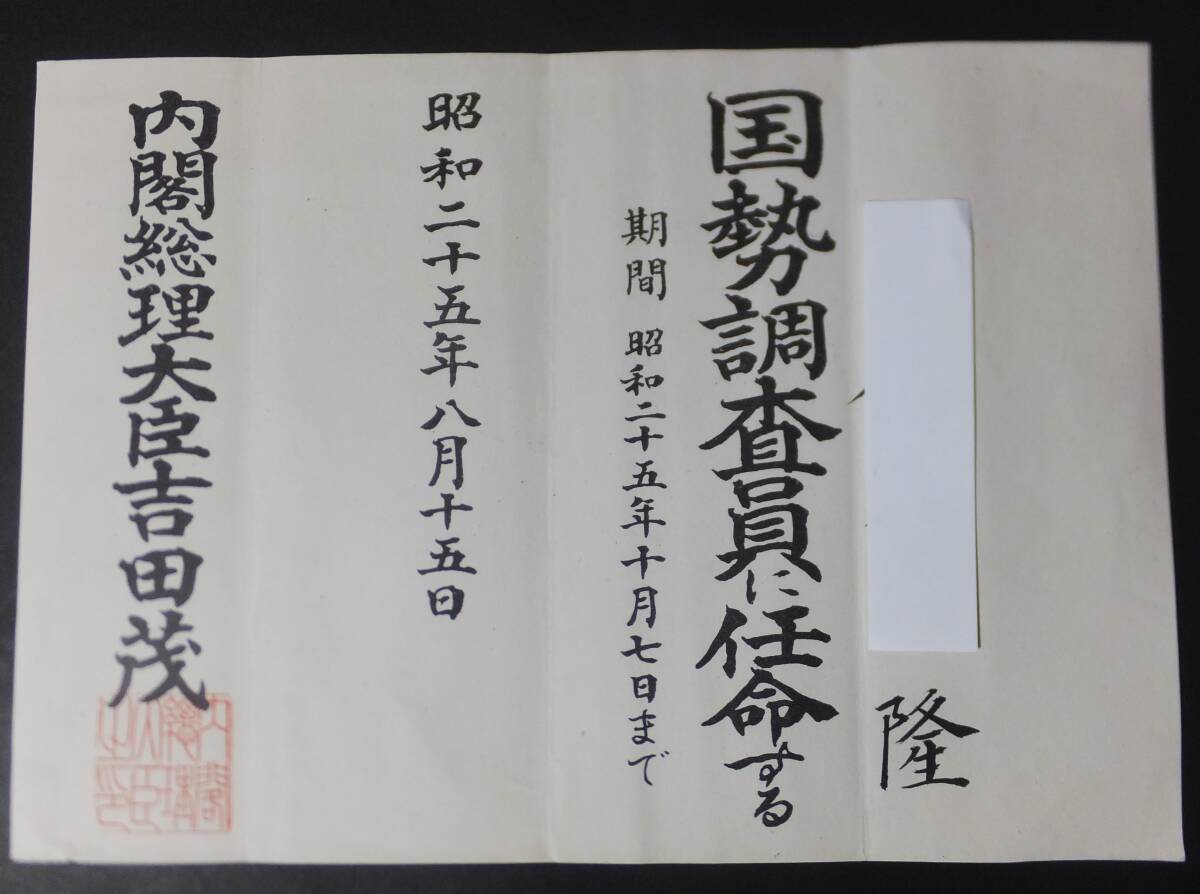 隆
国勢調査員に任命する
期間 昭和二十五年十月七日まで
昭和二十五年八月十五日
内閣総理大臣吉田茂
内閣
総理
大臣
之印